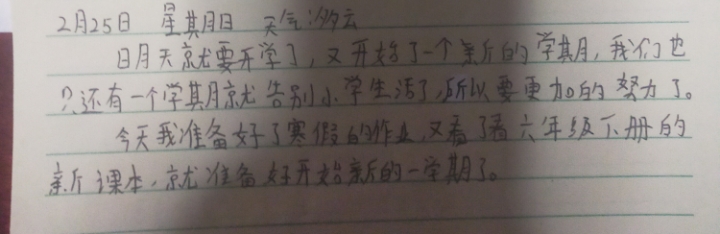 2月25日 星期日 天气:多云
明天就要开学了,又开始了一个新的学期,我们也
只还有一个学期就告别小学生活了,所以要更加的努力了。
今天我准备好了寒假的作业,又看了看六年级下册的
新课本,就准备好开始新的一学期了。